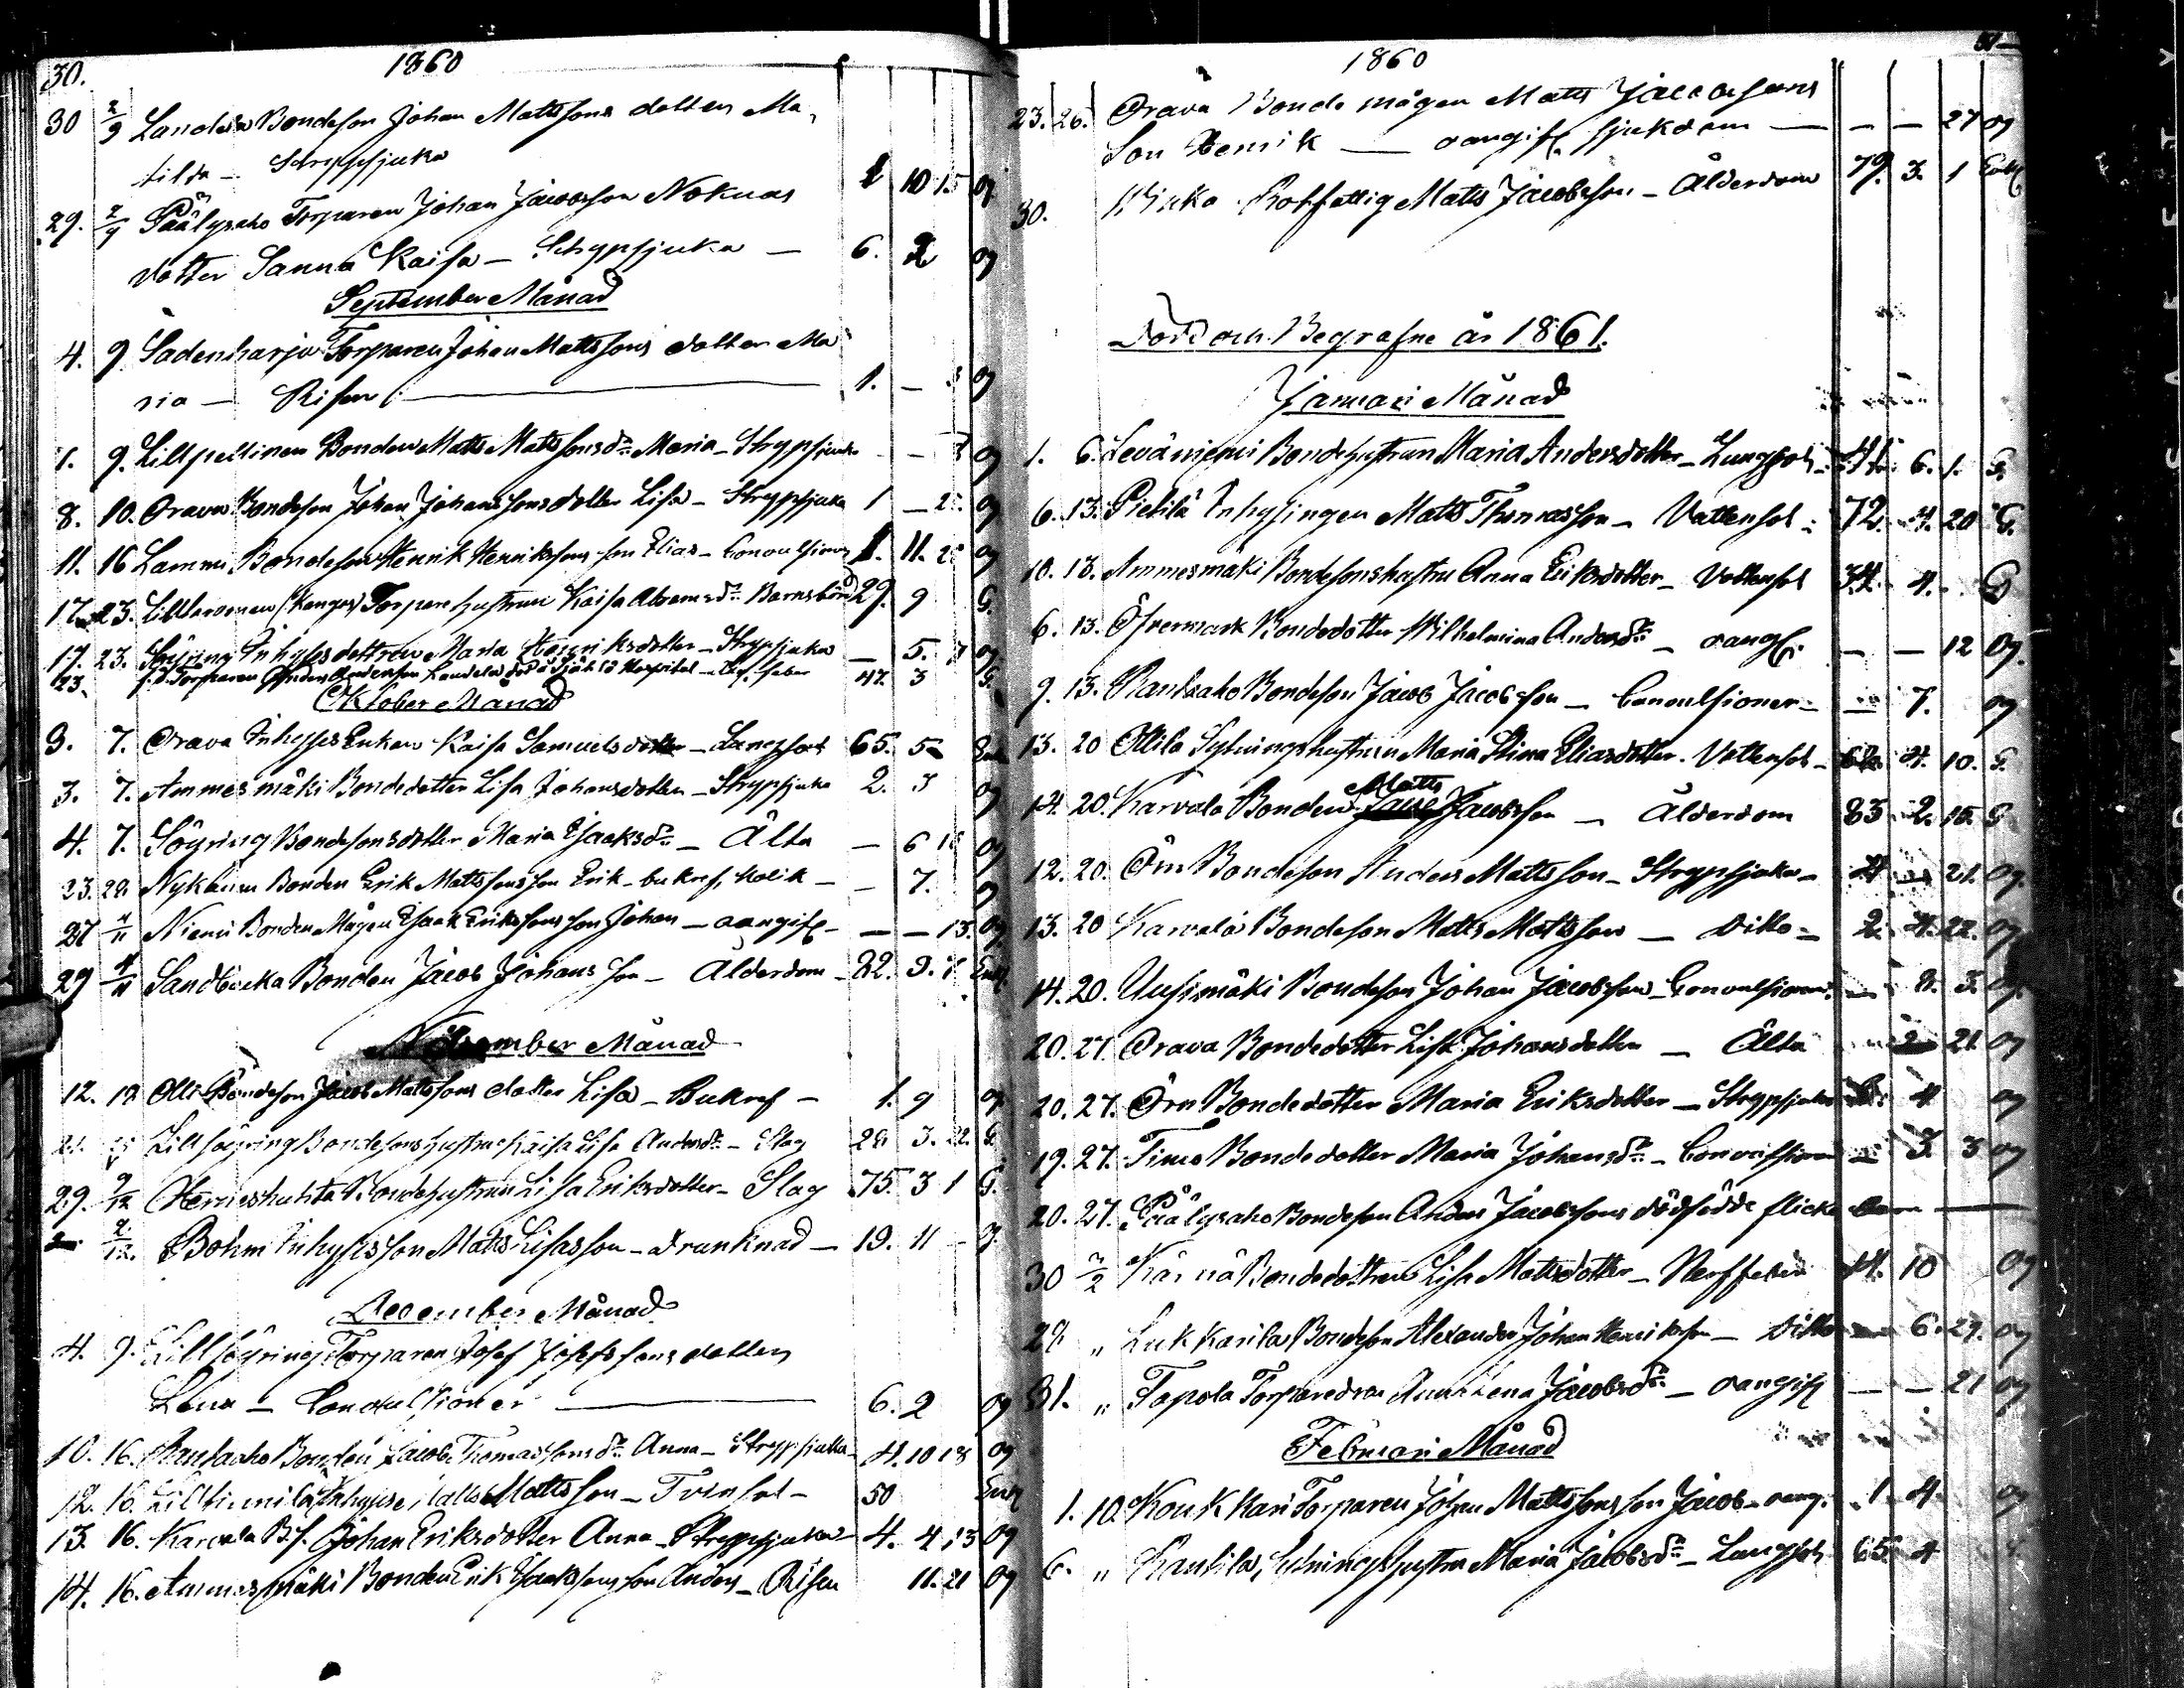 30.
1860
30 2/9 Landela Bondeson Johan Mattssons dotter Ma,
tilda - Strypsjuka 1 10 15 og
29. 2/9 Päälysaho Torparen Johan Jacobsson Noknas
dotter Sanna Kaisa - Strypsjuka - 6. 2 og
September Månad
4. 9 Sadenharju Torparen Johan Mattssons dotter Ma
ria - Risen 1. - og
1. 9. Lillpellinen Bonden Matts Mattssons dr Maria - Strypsjuka - - og
8. 10. Orava Bondeson Johan Johanssons dotter Lisa - Strypsjuka 1 - og
11. 16 Lammi Bondeson Henrik Henrikssons son Elias - Convulsioner 1. 11. og
17. 23. (Kangas) Torpare hustrun Kaisa Abramsdr Barnsbörd 29. 9 G.
17. 23. Söyring Inhyses dottren Maria Henriksdotter - Strypsjuka - 5. og
23. f.d. Torparen Anders Andersson Landela död å Sjählö Hospital 47. 3 G.
Oktober Månad
3. 7. Orava Inhyses Enkan Kaisa Samuelsdotter - Lungsot 65. 5 Enk
3. 7. Ammesmäki Bondedotter Lisa Johansdotter - Strypsjuka 2. 3 og
4. 7. Söyring Bondesonsdotter Maria Isacksdr - Älta - 6 og
23. 28. Nykänen Bonden Erik Mattssons son Erik - bukref, kolik - - 7. og
27 4/11 Niemi Bonden Mågen Isaac Erikssons son Johan - oangifv. - - 13. og
29 4/11 Sandbacka Bonden Jacob Johansson - Ålderdom - 82. 9. Enkl
November Månad
12. 18 Olli Bondeson Jacob Mattssons dotter Lisa - Bukref - 1. 9 og
Lillsöyring Bondesons hustrun Kaisa Lisa Andersdr - Slag 28 3. 22. G.
29. 9/12 Herneshuhta Bondehustrun Lisa Eriksdotter - Slag 75. 3 1 G.
2/12. Bohm Inhyses son Matts Lisasson - drunknad - 19. 11 - og
December Månad
4. 9. Lillsöyring Torparen Josef Josefssons dotter
Lena - Convulsioner 6. 2 og
10. 16. Rautaaho Bonden Jacob Thomassons dr Anna - Strypsjuka 4. 10 18 og
12. 16. Inhyse Matts Mattsson - Tvinsot - 50 Enkl
13. 16. Karvala B.s. Johan Eriksdotter Anna - Strypsjuka 4. 4 13 og
14. 16. Ammesmäki Bonden Erik Isackssons son Anders - Risen 11. 21 og
1860
31
23. 26. Orava Bonde mågen Matts Jacobssons
Son Henrik - oangifv. sjukdom - - - 27 og
30. Rotfattig Matts Jacobsson - Ålderdom 79. 3. 1 Enkl
Död och Begrafne år 1861.
Januari Månad
1. 6. Leväniemi Bondehustrun Maria Andersdotter - Lungsot - 6. 1. G.
6. 13. Pietilä Inhysingen Matts Thomasson - Vattensot - 72. 4. 20 G.
10. 13. Ammesmäki Bondesonshustru Anna Eriksdotter - Vattensot 34. 4. G
6. 13. Öfvermark Bondedotter Wilhelmina Andersdr - oangf. - - 12 Og.
9. 13. Rautaaho Bondeson Jacob Jacobsson - Convulsioner - - 7. og
13. 20 Ollila Sytningshustrun Maria Stina Eliasdotter. Vattensot - 4. 10. G.
Matts
14. 20. Karvala Bonden Jacobsson - Ålderdom 83 2. 15. G
12. 20. Örn Bondeson Anders Mattsson - Strypsjuka - 4 - 21. og.
13. 20 Karvala Bondeson Matts Mattsson - Ditto - 2. 4. 22. og
14. 20. Uusimäki Bondeson Johan Jacobsson - Convulsioner - 8. 3. og.
20. 27. Orava Bondedotter Lisa Johansdotter - Älta 2 21. og
20. 27. Örn Bondedotter Maria Eriksdotter - Strypsjuka 4 og
19. 27. Timo Bondedotter Maria Johansdr - Convulsioner - 3. 3 og
20. 27. Päälysaho Bondeson Anders Jacobssons dödfödde flicka
30 3/2 Kärnä Bondedottren Lisa Mattsdotter - Nerffeber 14. 10 og
28 " Lukkarila Bondeson Alexander Johan Henriksson - Ditto - 6. 29. og
31. " Tapola Torparedra Anna Lena Jacobsdr - oangifv - - 21 og
Februari Månad
1. 10. Koukkari Torparen Johan Mattssons son Jacob - oang. 1 4 og
6. " Rautila, Sytningshustru Maria Jacobsdr - Lungsot 65. 4